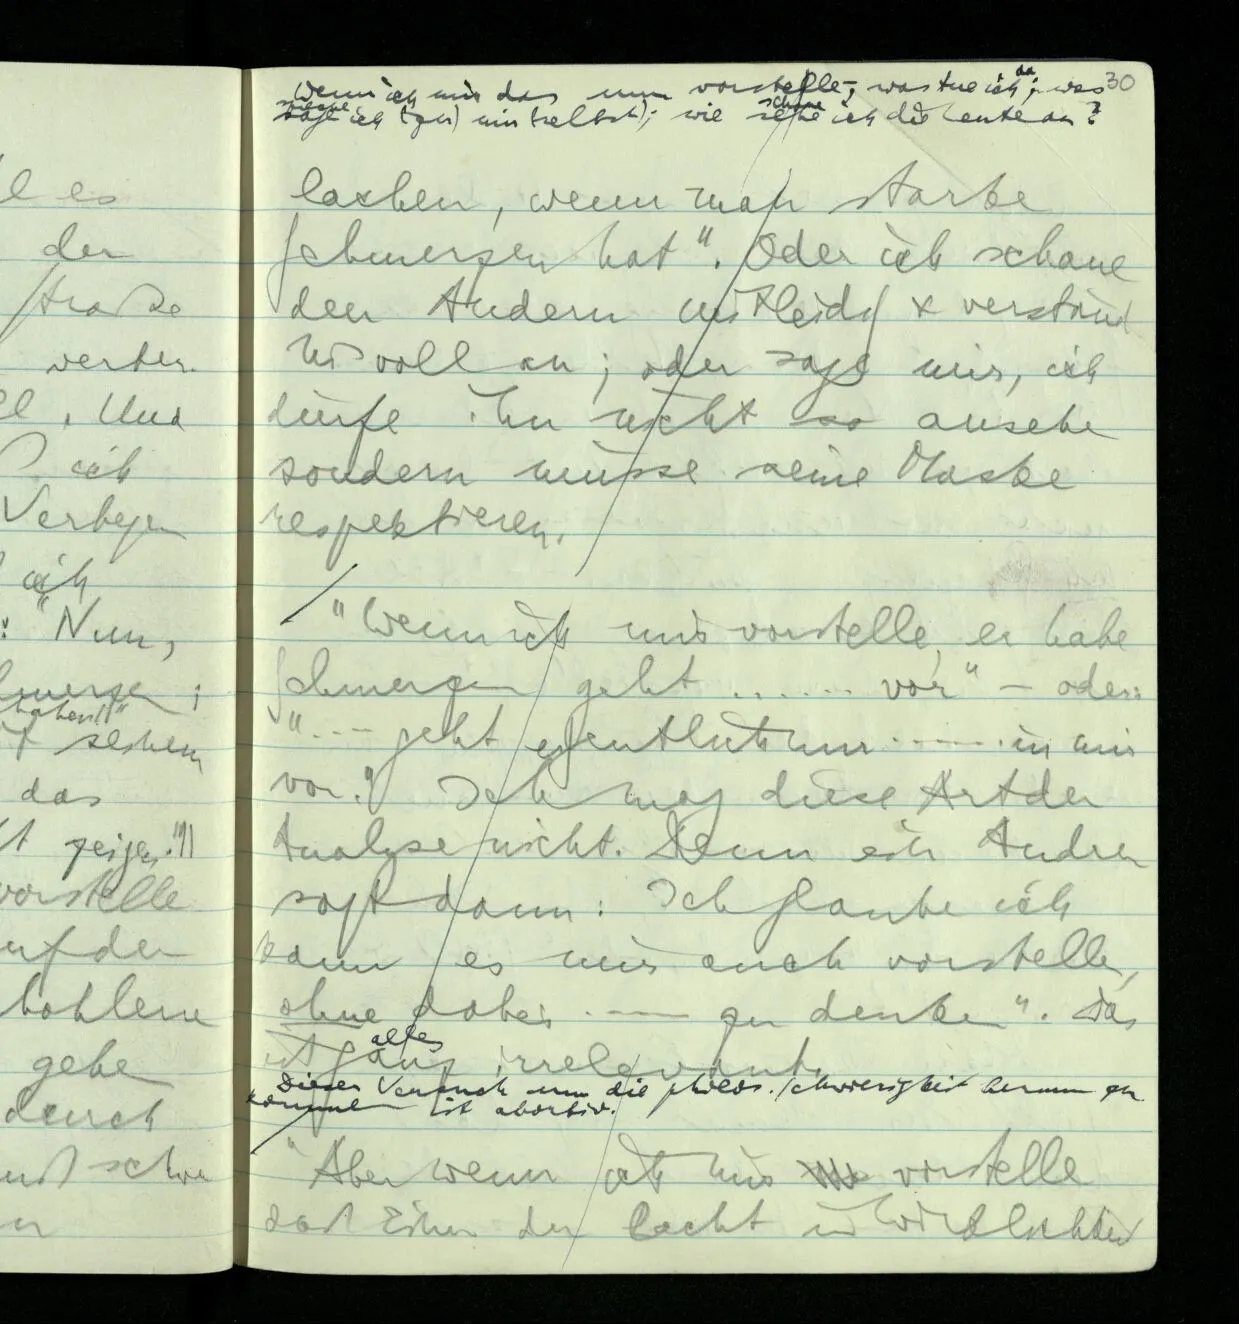 l es
der
Straße
l. Und
ich
Verbergen
ich
: "Nun,
Schmerzen;
haben!"
das
zeigen."
vorstelle
auf der
gehe
durch
30
Wenn ich mir das nun vorstelle, – was tue ich da; was
sage ich (zu) mir selbst; wie schaue ich die Leute an?
lachen, wenn man starke
Schmerzen hat". Oder ich schaue
den Andern mitleidig & verständ
nisvoll an; oder sage mir, ich
dürfe ihn nicht so ansehe
sondern müsse seine Maske
respektieren.
/ "Wenn ich mir vorstelle, er habe
Schmerzen geht ...... vor" – oder:
"... geht eigentlich nur ..... in mir
vor." Ich mag diese Art der
Analyse nicht. Denn ein Andrer
sagt dann: Ich glaube ich
kann es mir auch vorstelle,
ohne dabei ..... zu denken". Das
ist alles ganz irrelevant.
Dieser Versuch um die philos. Schwierigkeit herum zu
kommen ist abortiv.
/ "Aber wenn ich mir vorstelle
daß Einer der lacht in Wirklichkeit